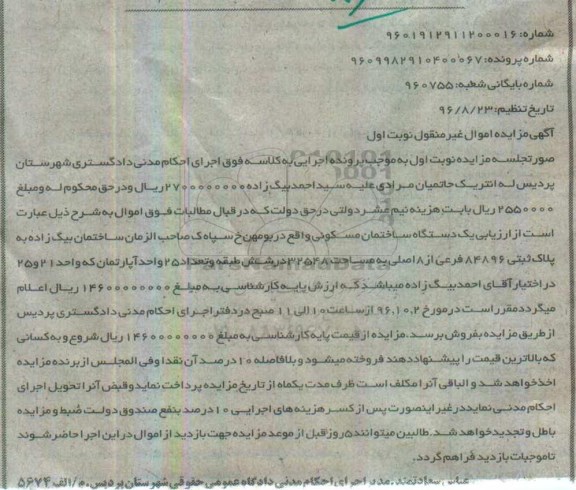 شماره: ۹۶۰۱۹۱۲۹۱۱۲۰۰۰۱۶
شماره پرونده: ۹۶۰۹۹۸۲۹۱۰۴۰۰۰۶۷
شماره بایگانی شعبه: ۹۶۰۷۵۵
تاریخ تنظیم: ۹۶/۸/۲۳
آگهی مزایده اموال غیر منقول نوبت اول
صورتجلسه مزایده نوبت اول به موجب پرونده اجرایی به کلاسه فوق اجرای احکام مدنی دادگستری شهرستان
پردیس له انتریک حاتمیان مرادی علیه سید احمد بیگ زاده ۲۷۰۰۰۰۰۰۰۰۰ ریال و در حق محکوم له و مبلغ
۲۵۵۰۰۰۰ ریال بابت هزینه نیم عشر دولتی در حق دولت که در قبال مطالبات فوق اموال به شرح ذیل عبارت
است از ارزیابی یک دستگاه ساختمان مسکونی واقع در بومهن خ سپاه ک صاحب الزمان ساختمان بیگ زاده به
پلاک ثبتی ۸۴۸۹۶ فرعی از ۸ اصلی به مساحت ۳۲۵۴۸ در شش طبقه و تعداد ۲۵ واحد آپارتمان که واحد ۲۱ و ۲۵
در اختیار آقای احمد بیگ زاده میباشد که ارزش پایه کارشناسی به مبلغ ۱۴۶۰۰۰۰۰۰۰۰۰ ریال اعلام
میگردد مقرر است در مورخ ۹۶.۱۰.۲ از ساعت ۱۰ الی ۱۱ صبح در دفتر اجرای احکام مدنی دادگستری پردیس
از طریق مزایده بفروش برسد. مزایده از قیمت پایه کارشناسی به مبلغ ۱۴۶۰۰۰۰۰۰۰۰۰ ریال شروع و به کسانی
که بالاترین قیمت را پیشنهاد دهند فروخته میشود و بلافاصله ۱۰ درصد آن نقدا و فی المجلس از برنده مزایده
اخذ خواهد شد و الباقی آنرا مکلف است ظرف مدت یکماه از تاریخ مزایده پرداخت نماید و قبض آنرا تحویل اجرای
احکام مدنی نماید در غیر اینصورت پس از کسر هزینه های اجرایی ۱۰ درصد بنفع صندوق دولت ضبط و مزایده
باطل و تجدید خواهد شد. طالبین میتوانند ۵ روز قبل از موعد مزایده جهت بازدید از اموال در این اجرا حاضر شوند
تا موجبات بازدید فراهم گردد.
مدیر اجرای احکام مدنی دادگاه عمومی حقوقی شهرستان پردیس. م/الف ۵۶۷۴